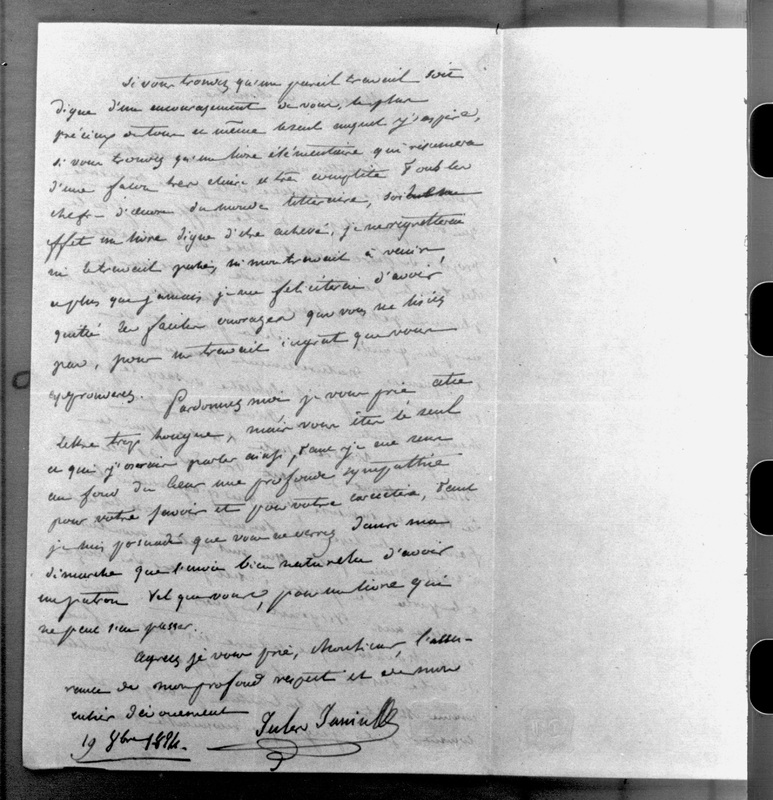 si vous trouvez qu'un pareil travail soit
digne d'un encouragement de vous, le plus
précieux de tous et même le seul auquel j'aspire,
si vous trouvez qu'un livre élémentaire qui résumera
d'une façon très claire et très complète tous les
chefs-d'œuvre du monde littéraire, soit
effet un livre digne d'être achevé, je ne regretterai
ni le travail passé, ni mon travail à venir
et plus que jamais je me féliciterai d'avoir
quitté les faciles ouvrages que vous ne lisiez
pas, pour un travail ingrat que vous
approuverez. Pardonnez moi je vous prie cette
lettre trop longue, mais vous êtes le seul
à qui j'oserais parler ainsi, tant je me sens
au fond du cœur une profonde sympathie
pour votre savoir et pour votre caractère, tant
je suis persuadé que vous ne verrez dans ma
démarche que l'envie bien naturelle d'avoir
un patron tel que vous, pour un livre qui
ne peut s'en passer.
Agréez je vous prie, Monsieur, l'assu-
rance de mon profond respect et de mon
entier dévouement
Jules Janin
19 8bre 1834.